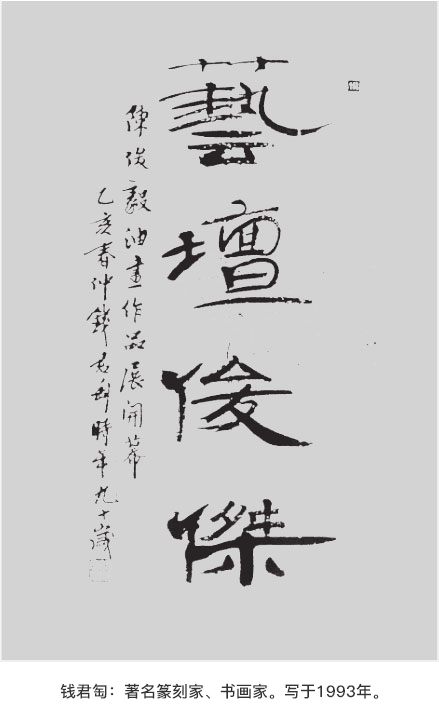 藝壇俊傑
陳俊毅油畫作品展開幕
乙亥春仲錢君匋時年九十歲
钱君匋：著名篆刻家、书画家。写于1993年。